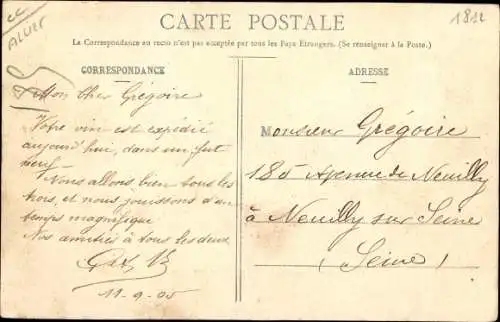 CARTE POSTALE
La Correspondance au recto n'est pas acceptée par tous les Pays Etrangers. (Se renseigner à la Poste)
CORRESPONDANCE
ADRESSE
1812
Mon Cher Grégoire
Votre vin est expédié
aujourd'hui, dans un fut
neuf.
Nous allons bien tous les
trois, et nous jouissons d'un
temps magnifique
Nos amitiés à tous les deux,
11-9-05
Monsieur Grégoire
185 Avenue de Neuilly
à Neuilly sur Seine
(Seine)